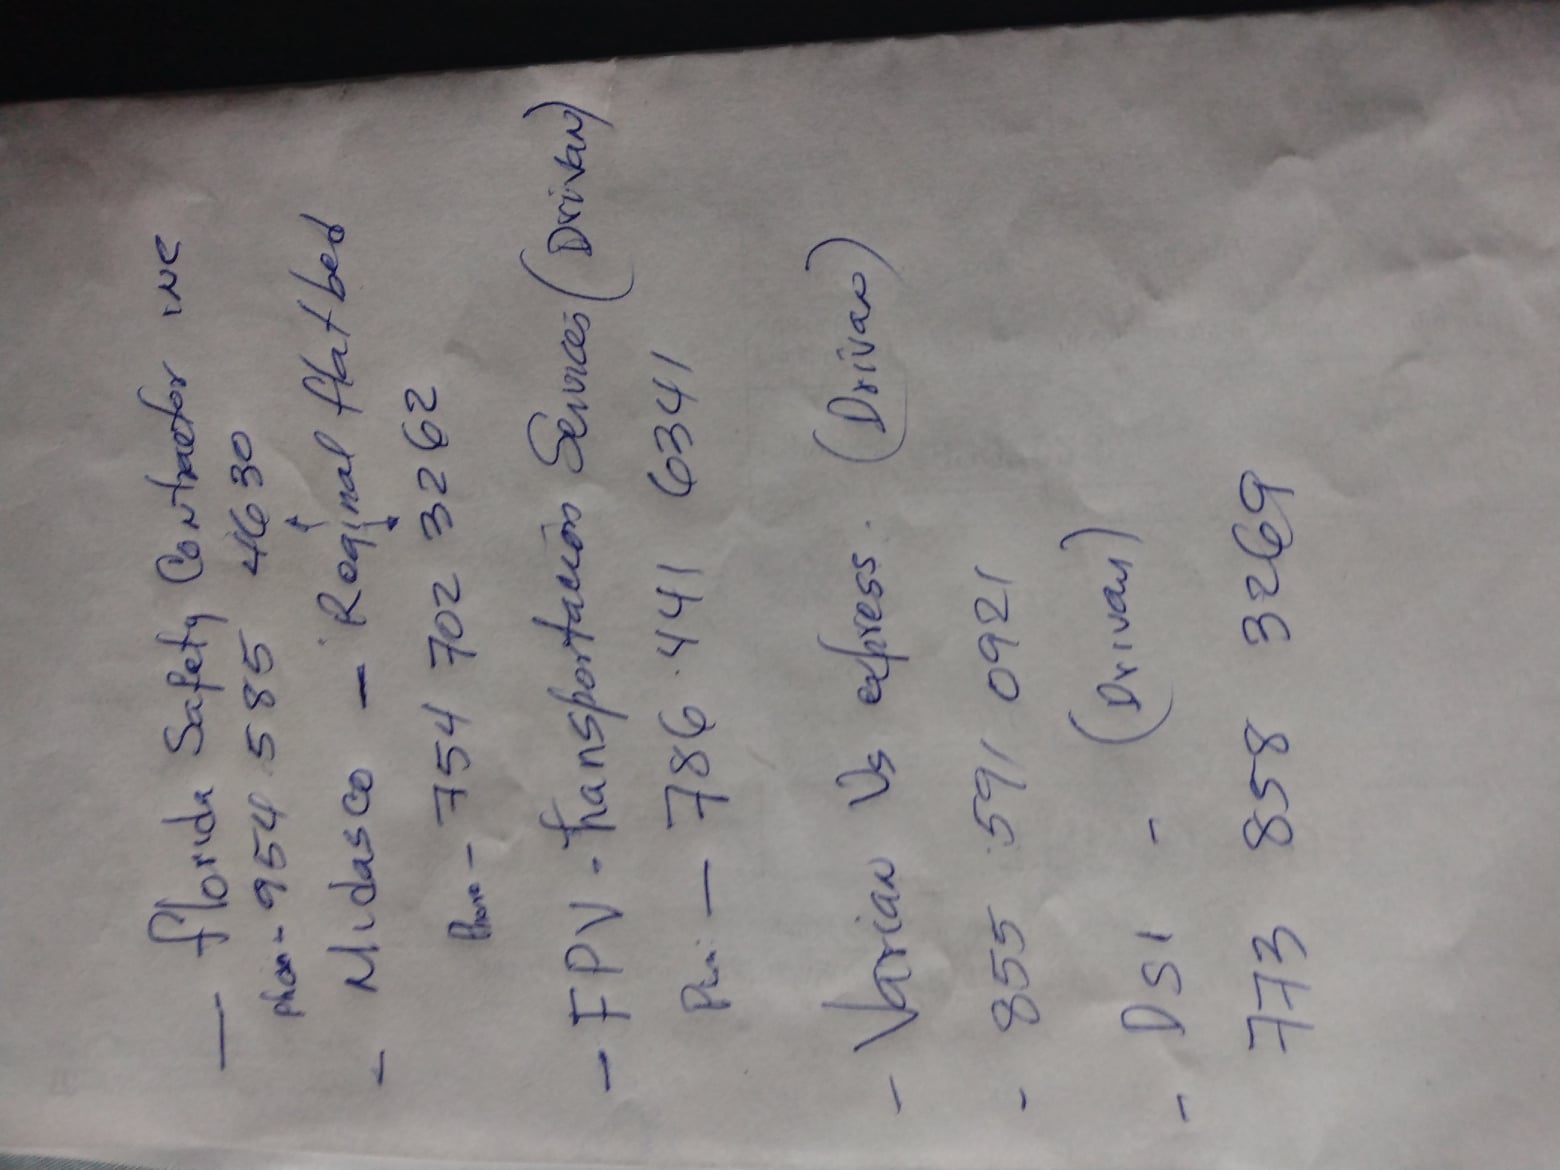 — Florida Safety Contractor inc
phon - 954.585 4630
- Midasco — Roginal flatbed
Phone - 754 702 3262
- FPV - Transportacion Services (Drivan)
— 786.441 6341
- Varian Us express. (Drivan)
- 855.591 0921
- DSI - (Drivan)
773 858 3269